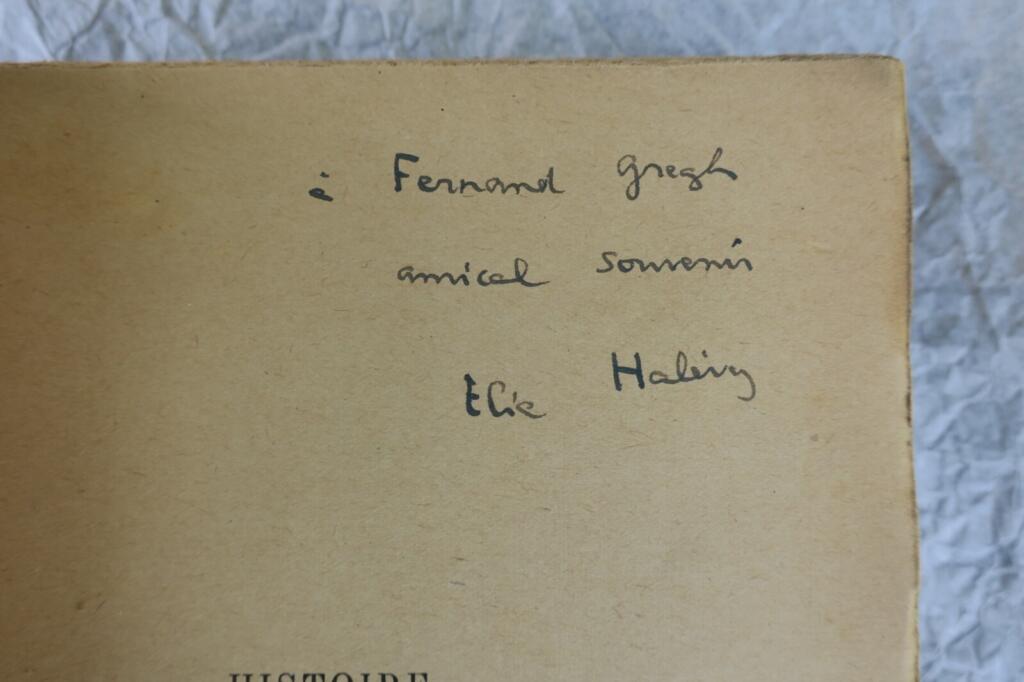 à Fernand Gregh
amical souvenir
Elie Halévy
HISTOIRE